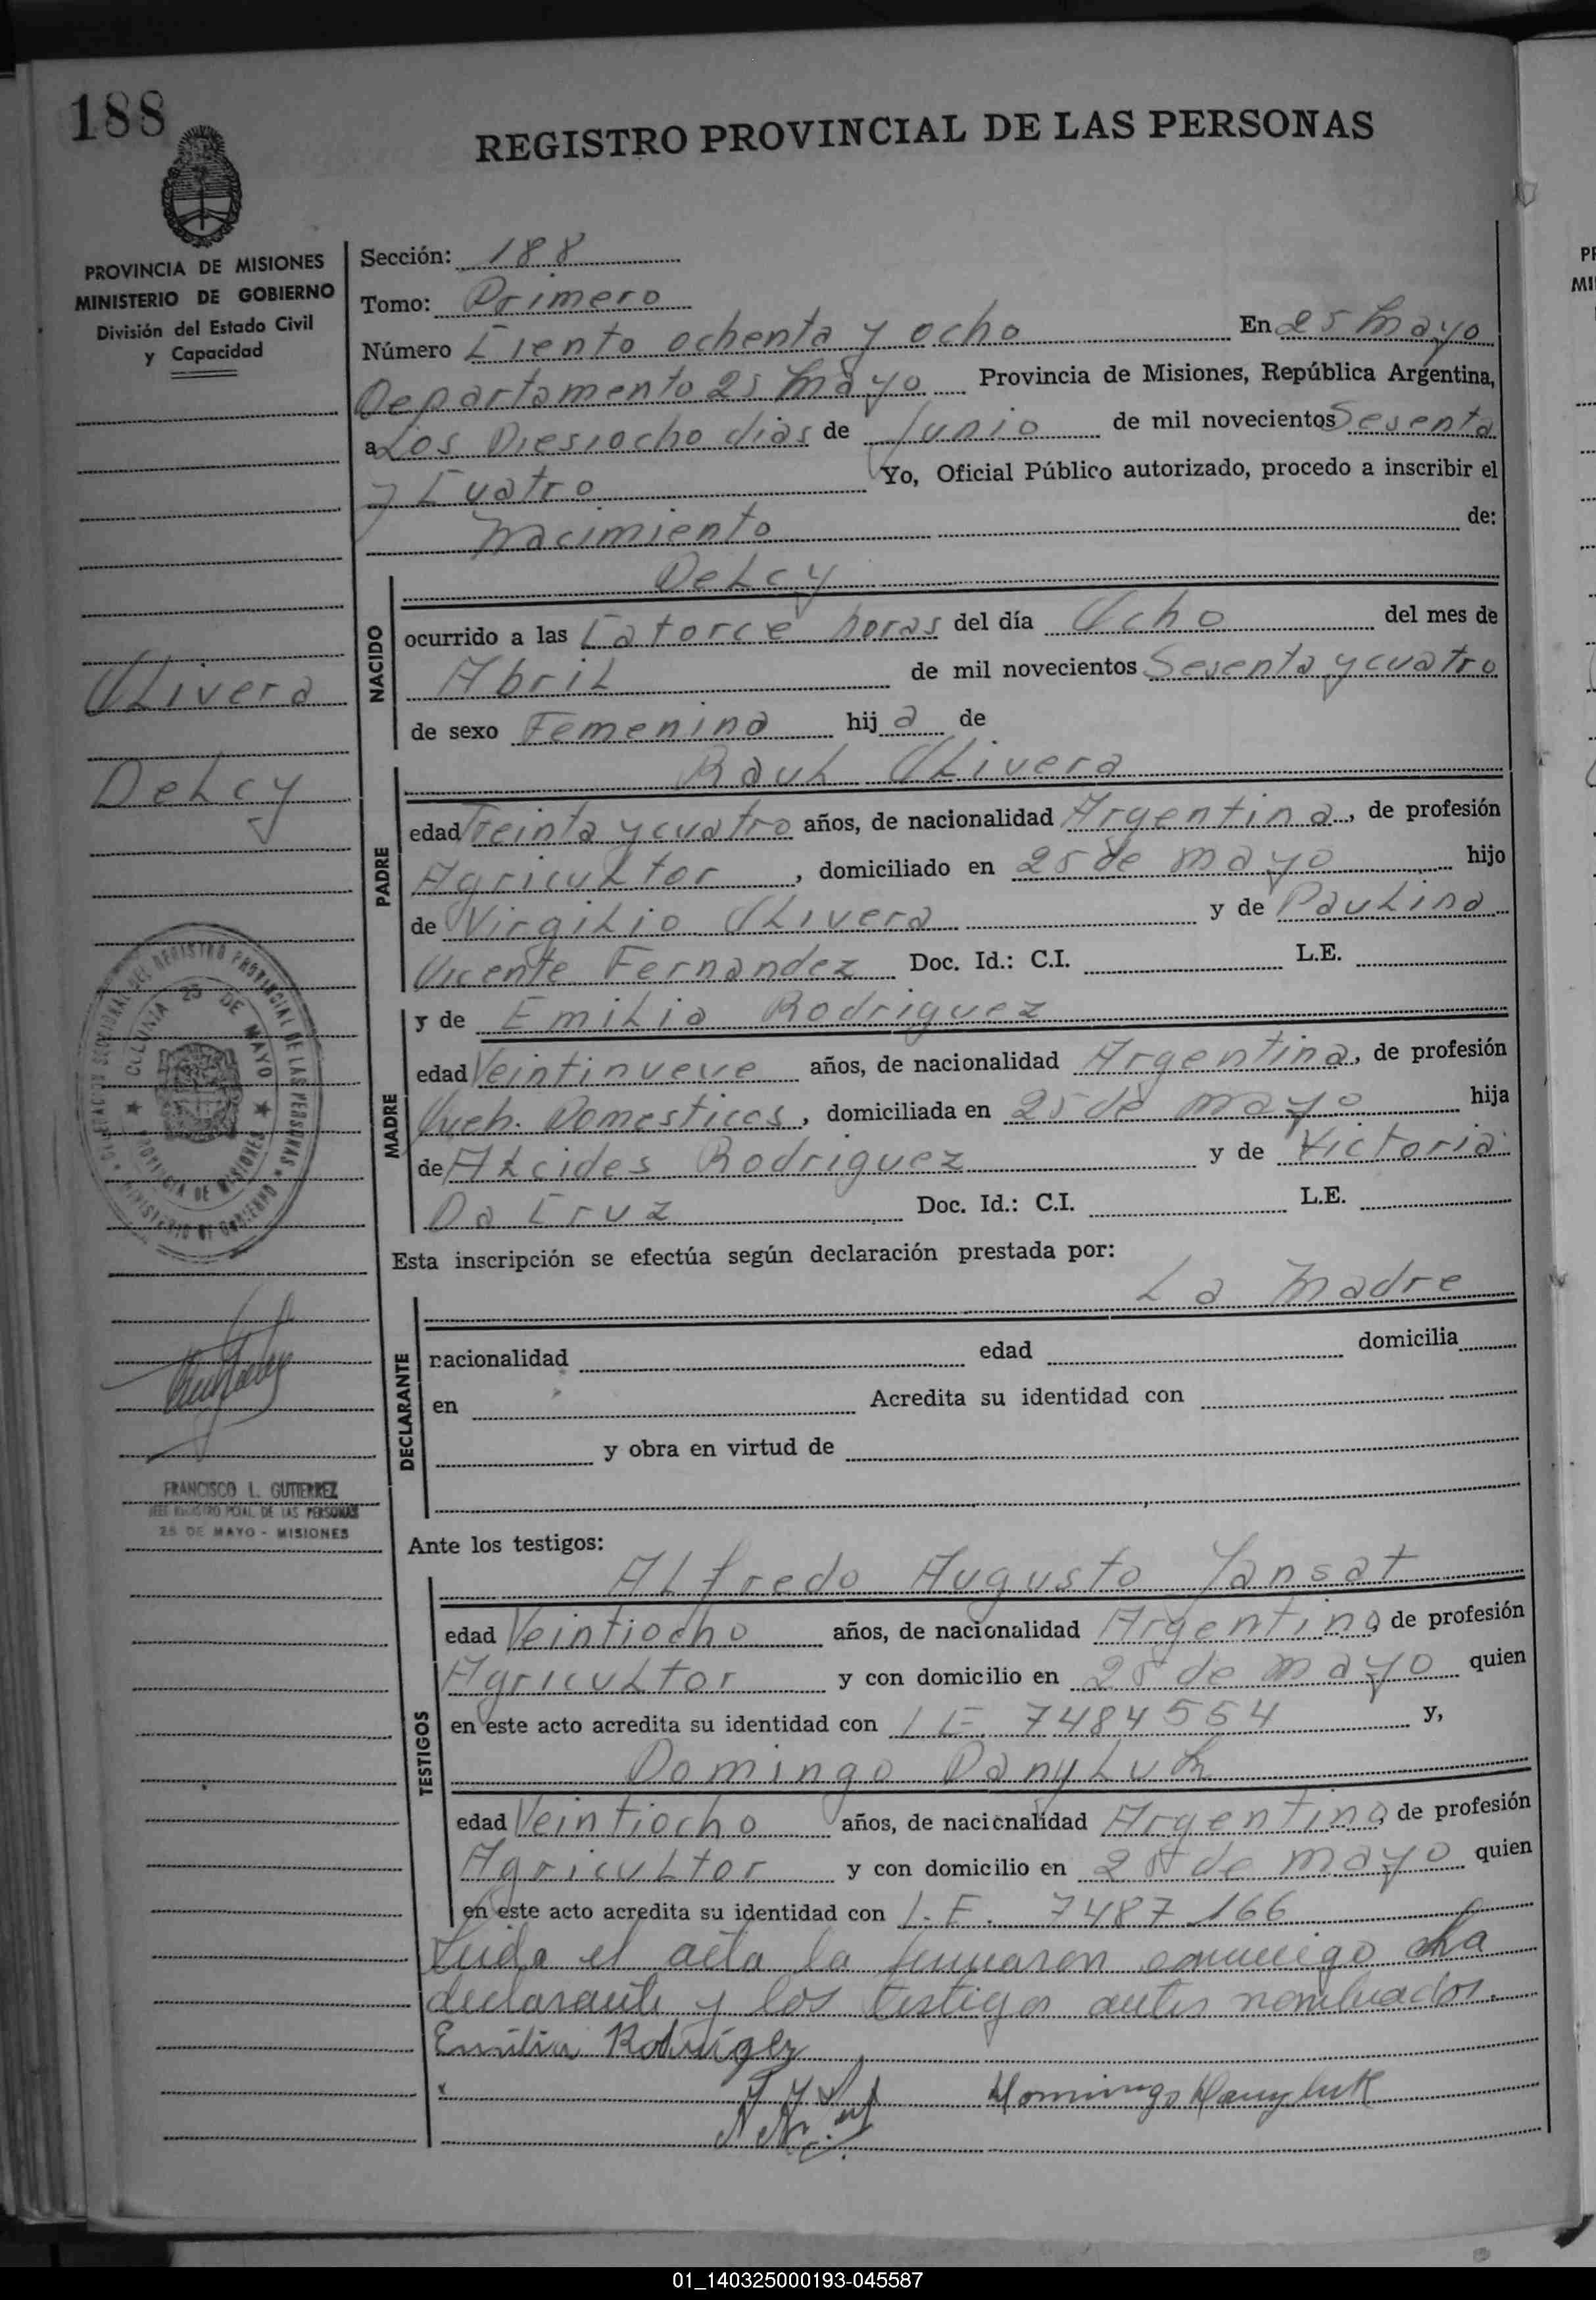 188
REGISTRO PROVINCIAL DE LAS PERSONAS
PROVINCIA DE MISIONES
MINISTERIO DE GOBIERNO
División del Estado Civil
y Capacidad
Sección: 188
Tomo: Primero
Número Ciento ochenta y ocho En 25 Mayo
Departamento 25 Mayo Provincia de Misiones, República Argentina,
a Los Diesiocho dias de Junio de mil novecientos Sesenta
y Cuatro Yo, Oficial Público autorizado, procedo a inscribir el
Nacimiento de:
DeLcy
NACIDO
ocurrido a las Catorce horas del día Ocho del mes de
AbriL de mil novecientos Sesenta y cuatro
de sexo Femenino hij a de
OLivera
DeLcy
PADRE
RauL OLivera
edad Treinta y cuatro años, de nacionalidad Argentina, de profesión
AgricuLtor, domiciliado en 25 de mayo hijo
de VirgiLio OLivera y de PauLina
Vicente Fernandez Doc. Id.: C.I. L.E.
MADRE
y de EmiLia Rodriguez
edad Veintinueve años, de nacionalidad Argentina, de profesión
Queh. Domesticos, domiciliada en 25 de mayo hija
de ALcides Rodriguez y de Victoria
Da Cruz Doc. Id.: C.I. L.E.
COLONIA 25 DE MAYO
PROVINCIA DE MISIONES
MINISTERIO DE GOBIERNO
Esta inscripción se efectúa según declaración prestada por:
La Madre
DECLARANTE
nacionalidad edad domicilia
en Acredita su identidad con
y obra en virtud de
FRANCISCO L. GUTIERREZ
JEFE REGISTRO PCIAL. DE LAS PERSONAS
25 DE MAYO - MISIONES
Ante los testigos:
TESTIGOS
ALfredo Augusto Jansat
edad Veintiocho años, de nacionalidad Argentina de profesión
AgricuLtor y con domicilio en 25 de mayo quien
en este acto acredita su identidad con LE. 7484554 y,
Domingo DanyLuk
edad Veintiocho años, de nacionalidad Argentina de profesión
AgricuLtor y con domicilio en 25 de mayo quien
en este acto acredita su identidad con L.E. 7487166
Leida el acta la firmaron conmigo la
declarante y los testigos antes nombrados.
Emilia Rodrigez
Domingo Danyluk
01_140325000193-045587